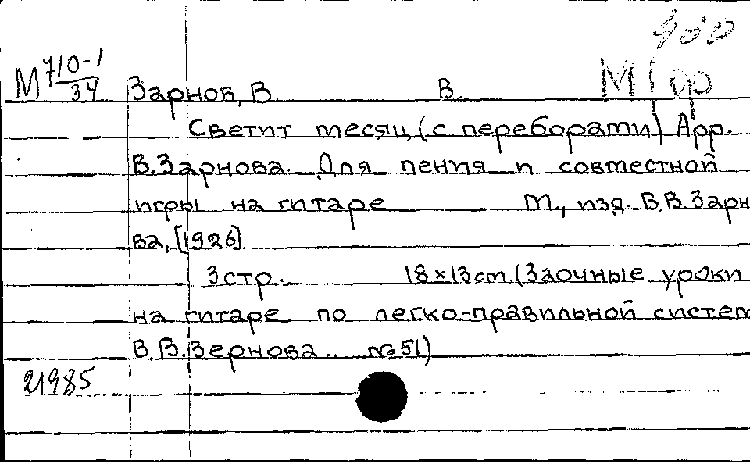 900
М 710-1/34 Зарнов, В. В. М гр
Светит месяц (с переборами) Арр.
В. Зарнова. Для пения и совместной
игры на гитаре М., изд. В.В. Зарно
ва, [1926]
3 стр. 18×13 cm (Заочные уроки
на гитаре по легко-правильной систем
В.В. Зернова № 51)
21985